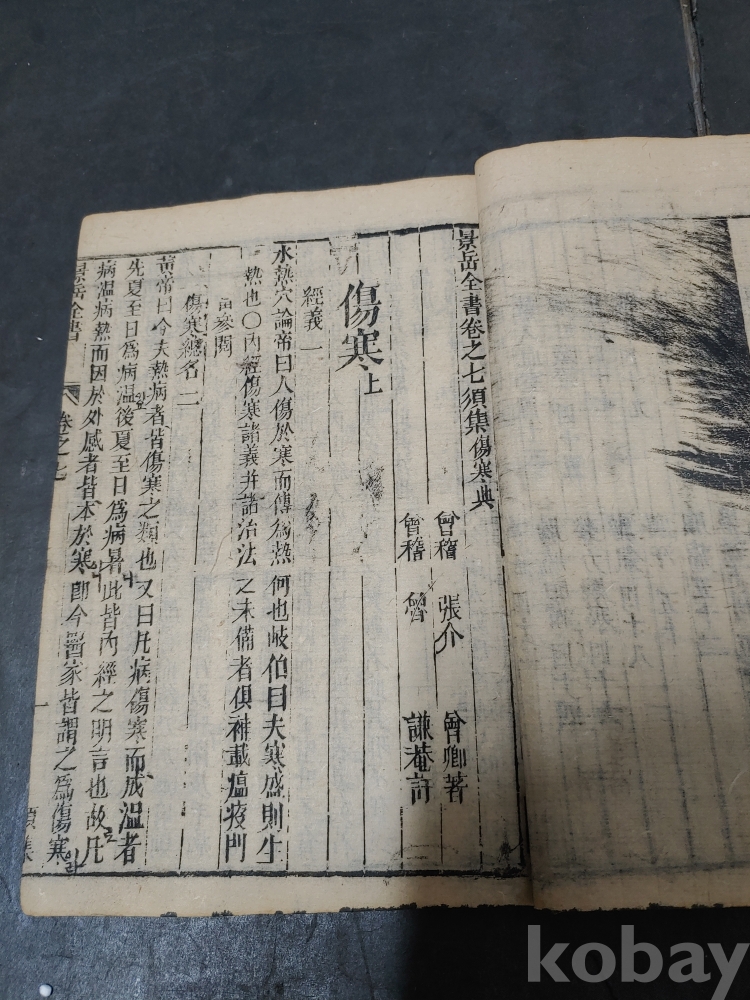 景岳全書卷之七須集傷寒典
會稽 張介 會卿著
會稽 魯 謙菴訂
傷寒上
經義一
水熱穴論帝曰人傷於寒而傳為熱何也岐伯曰夫寒盛則生
熱也〇內經傷寒諸義并諸治法之未備者俱補載瘟疫門
傷寒總名二
黃帝曰今夫熱病者皆傷寒之類也又曰凡病傷寒而成溫者
先夏至日為病溫後夏至日為病暑此皆內經之明言也故凡
病溫病熱而因於外感者皆本於寒即今醫家皆謂之為傷寒
景岳全書 卷之七
kobay